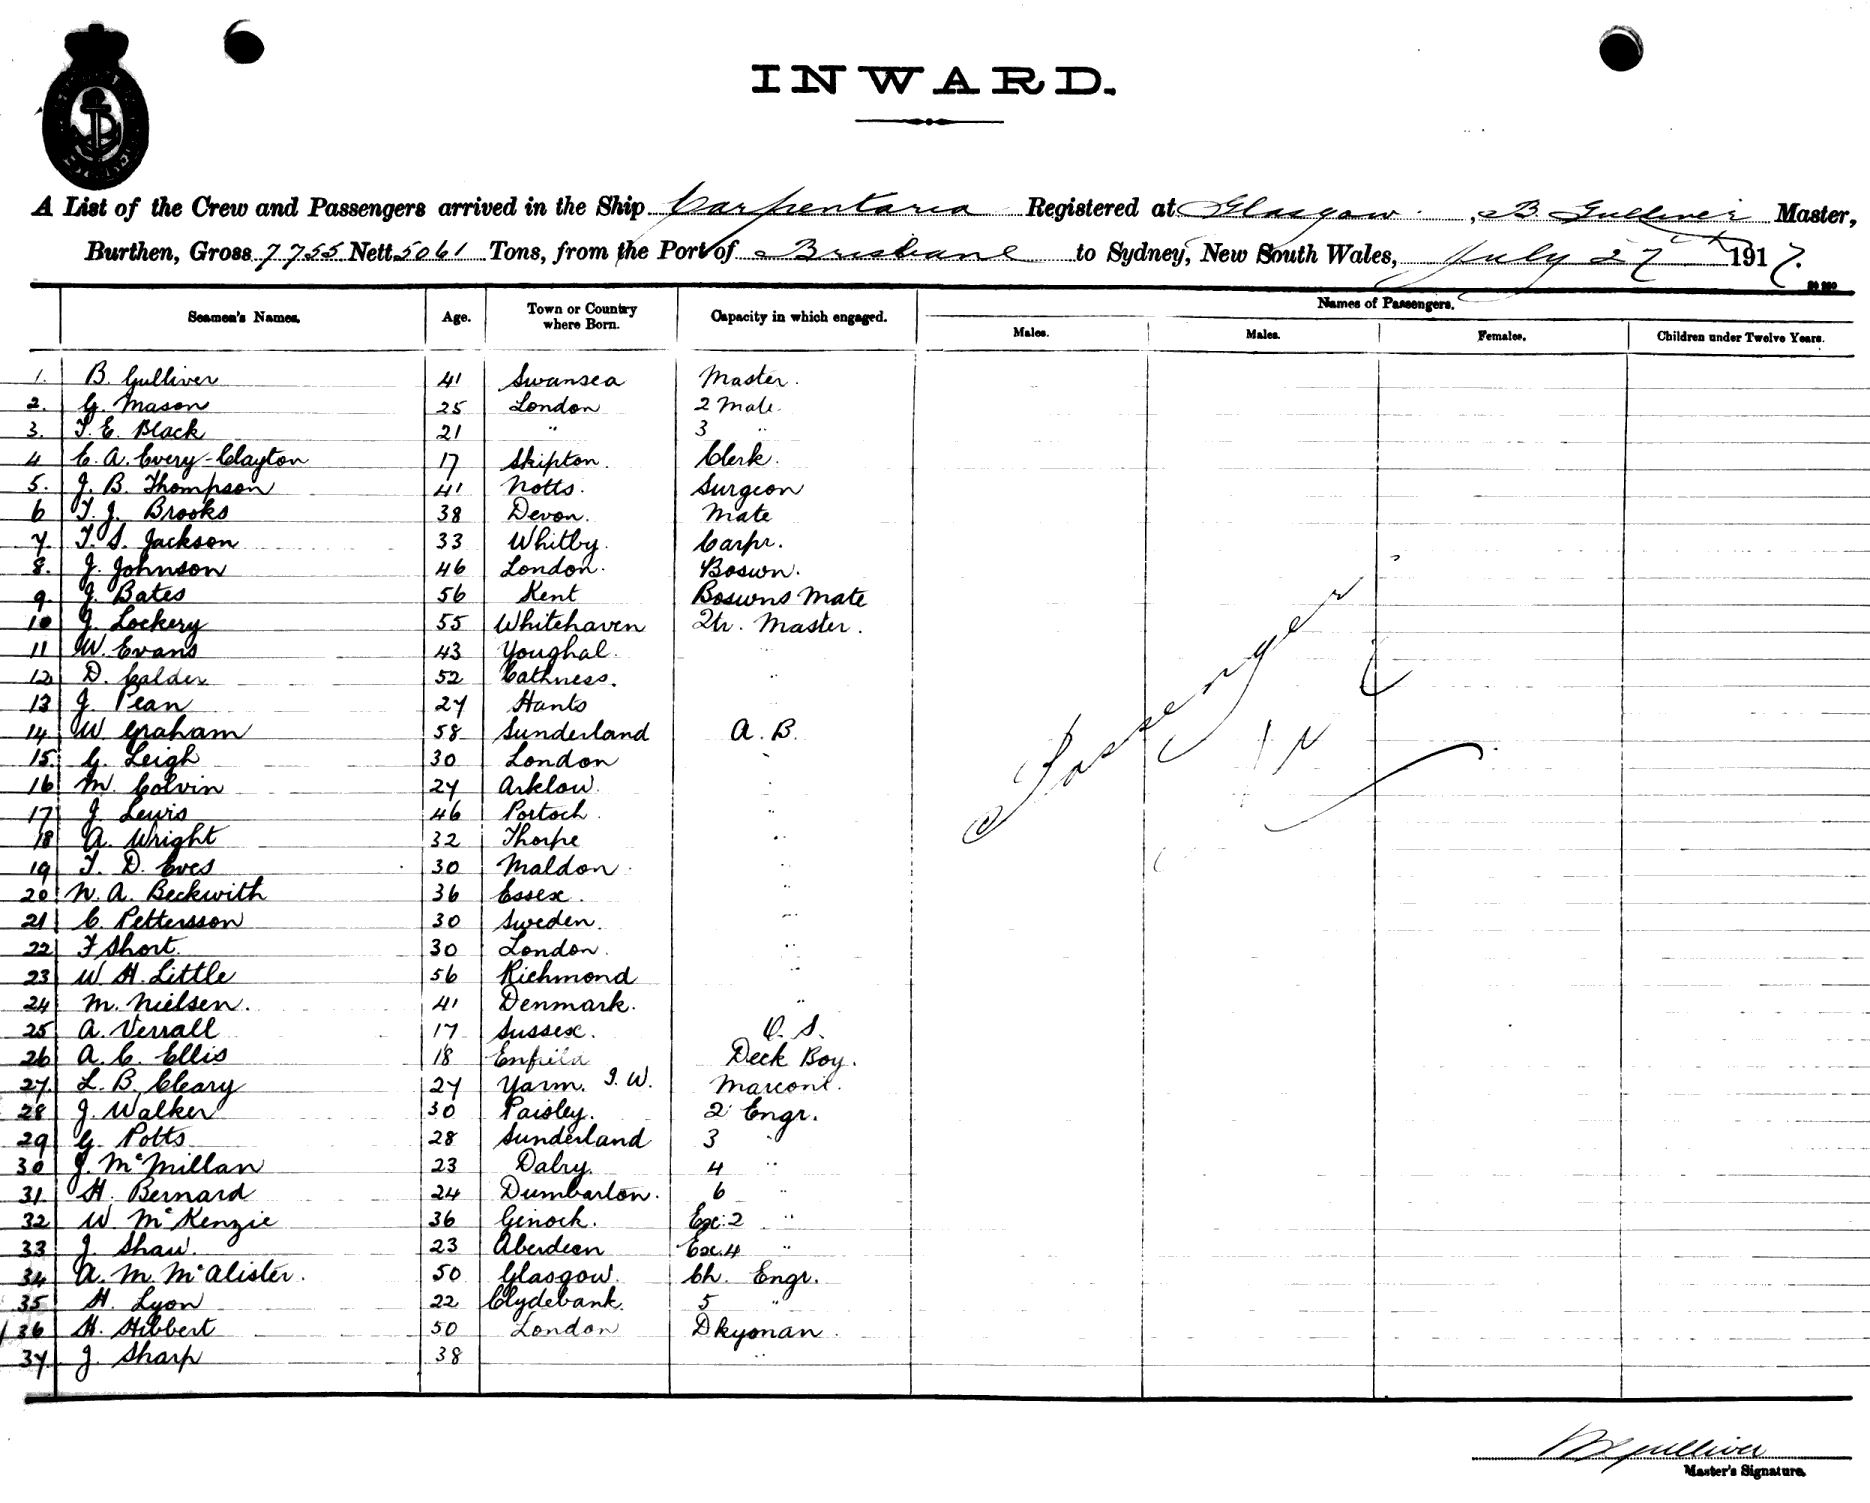 INWARD.
A List of the Crew and Passengers arrived in the Ship Carpentaria Registered at Glasgow, B. Gulliver Master,
Burthen, Gross 7755 Nett 5061 Tons, from the Port of Brisbane to Sydney, New South Wales, July 27th 1917.
Names of Passengers.
Seamen's Names. Age. Town or Country where Born. Capacity in which engaged. Males. Males. Females. Children under Twelve Years.
1. B. Gulliver 41 Swansea Master.
2. G. Mason 25 London 2 Mate.
3. T. E. Black 21 " 3 "
4 C. A. Every-Clayton 17 Skipton. Clerk.
5. J. B. Thompson 41 Notts. Surgeon
6 T. J. Brooks 38 Devon. Mate
7. T. S. Jackson 33 Whitby. Carpr.
8. J. Johnson 46 London. Boswn.
9. J. Bates 56 Kent Boswns Mate
10 J. Lockery 55 Whitehaven Qtr. Master.
11 W. Evans 43 Youghal. "
12 D. Calder 52 Cathness. "
13 J. Pean 27 Hants
14 W Graham 58 Sunderland A. B.
15. G. Leigh 30 London "
16 M. Colvin 27 Arklow. "
17 J. Lewis 46 Portsoh. "
18 A. Wright 32 Thorpe "
19 T. D. Eves 30 Maldon. "
20 W. A. Beckwith 36 Essex. "
21 C. Pettersson 30 Sweden. "
22 F Short. 30 London. "
23 W. H. Little 56 Richmond "
24 M. Nielsen. 41 Denmark. "
25 A. Verrall 17 Sussex. O. S.
26 A. C. Ellis 18 Enfield Deck Boy.
27. L. B. Cleary 27 Yarm. I. W. Marconi.
28 J. Walker 30 Paisley. 2 Engr.
29 G. Potts 28 Sunderland 3 "
30 J. McMillan 23 Dalry. 4 "
31 H. Bernard 24 Dumbarton. 6 "
32 W. McKenzie 36 Ginock. Ex: 2 "
33 J. Shaw. 23 Aberdeen Ex. 4 "
34 A. M. McAlister. 50 Glasgow. Ch. Engr.
35 H. Lyon 22 Clydebank. 5 "
36 H. Hibbert 50 London Dkyonan.
37. J. Sharp 38 "
Passenger
B Gulliver
Master's Signature.